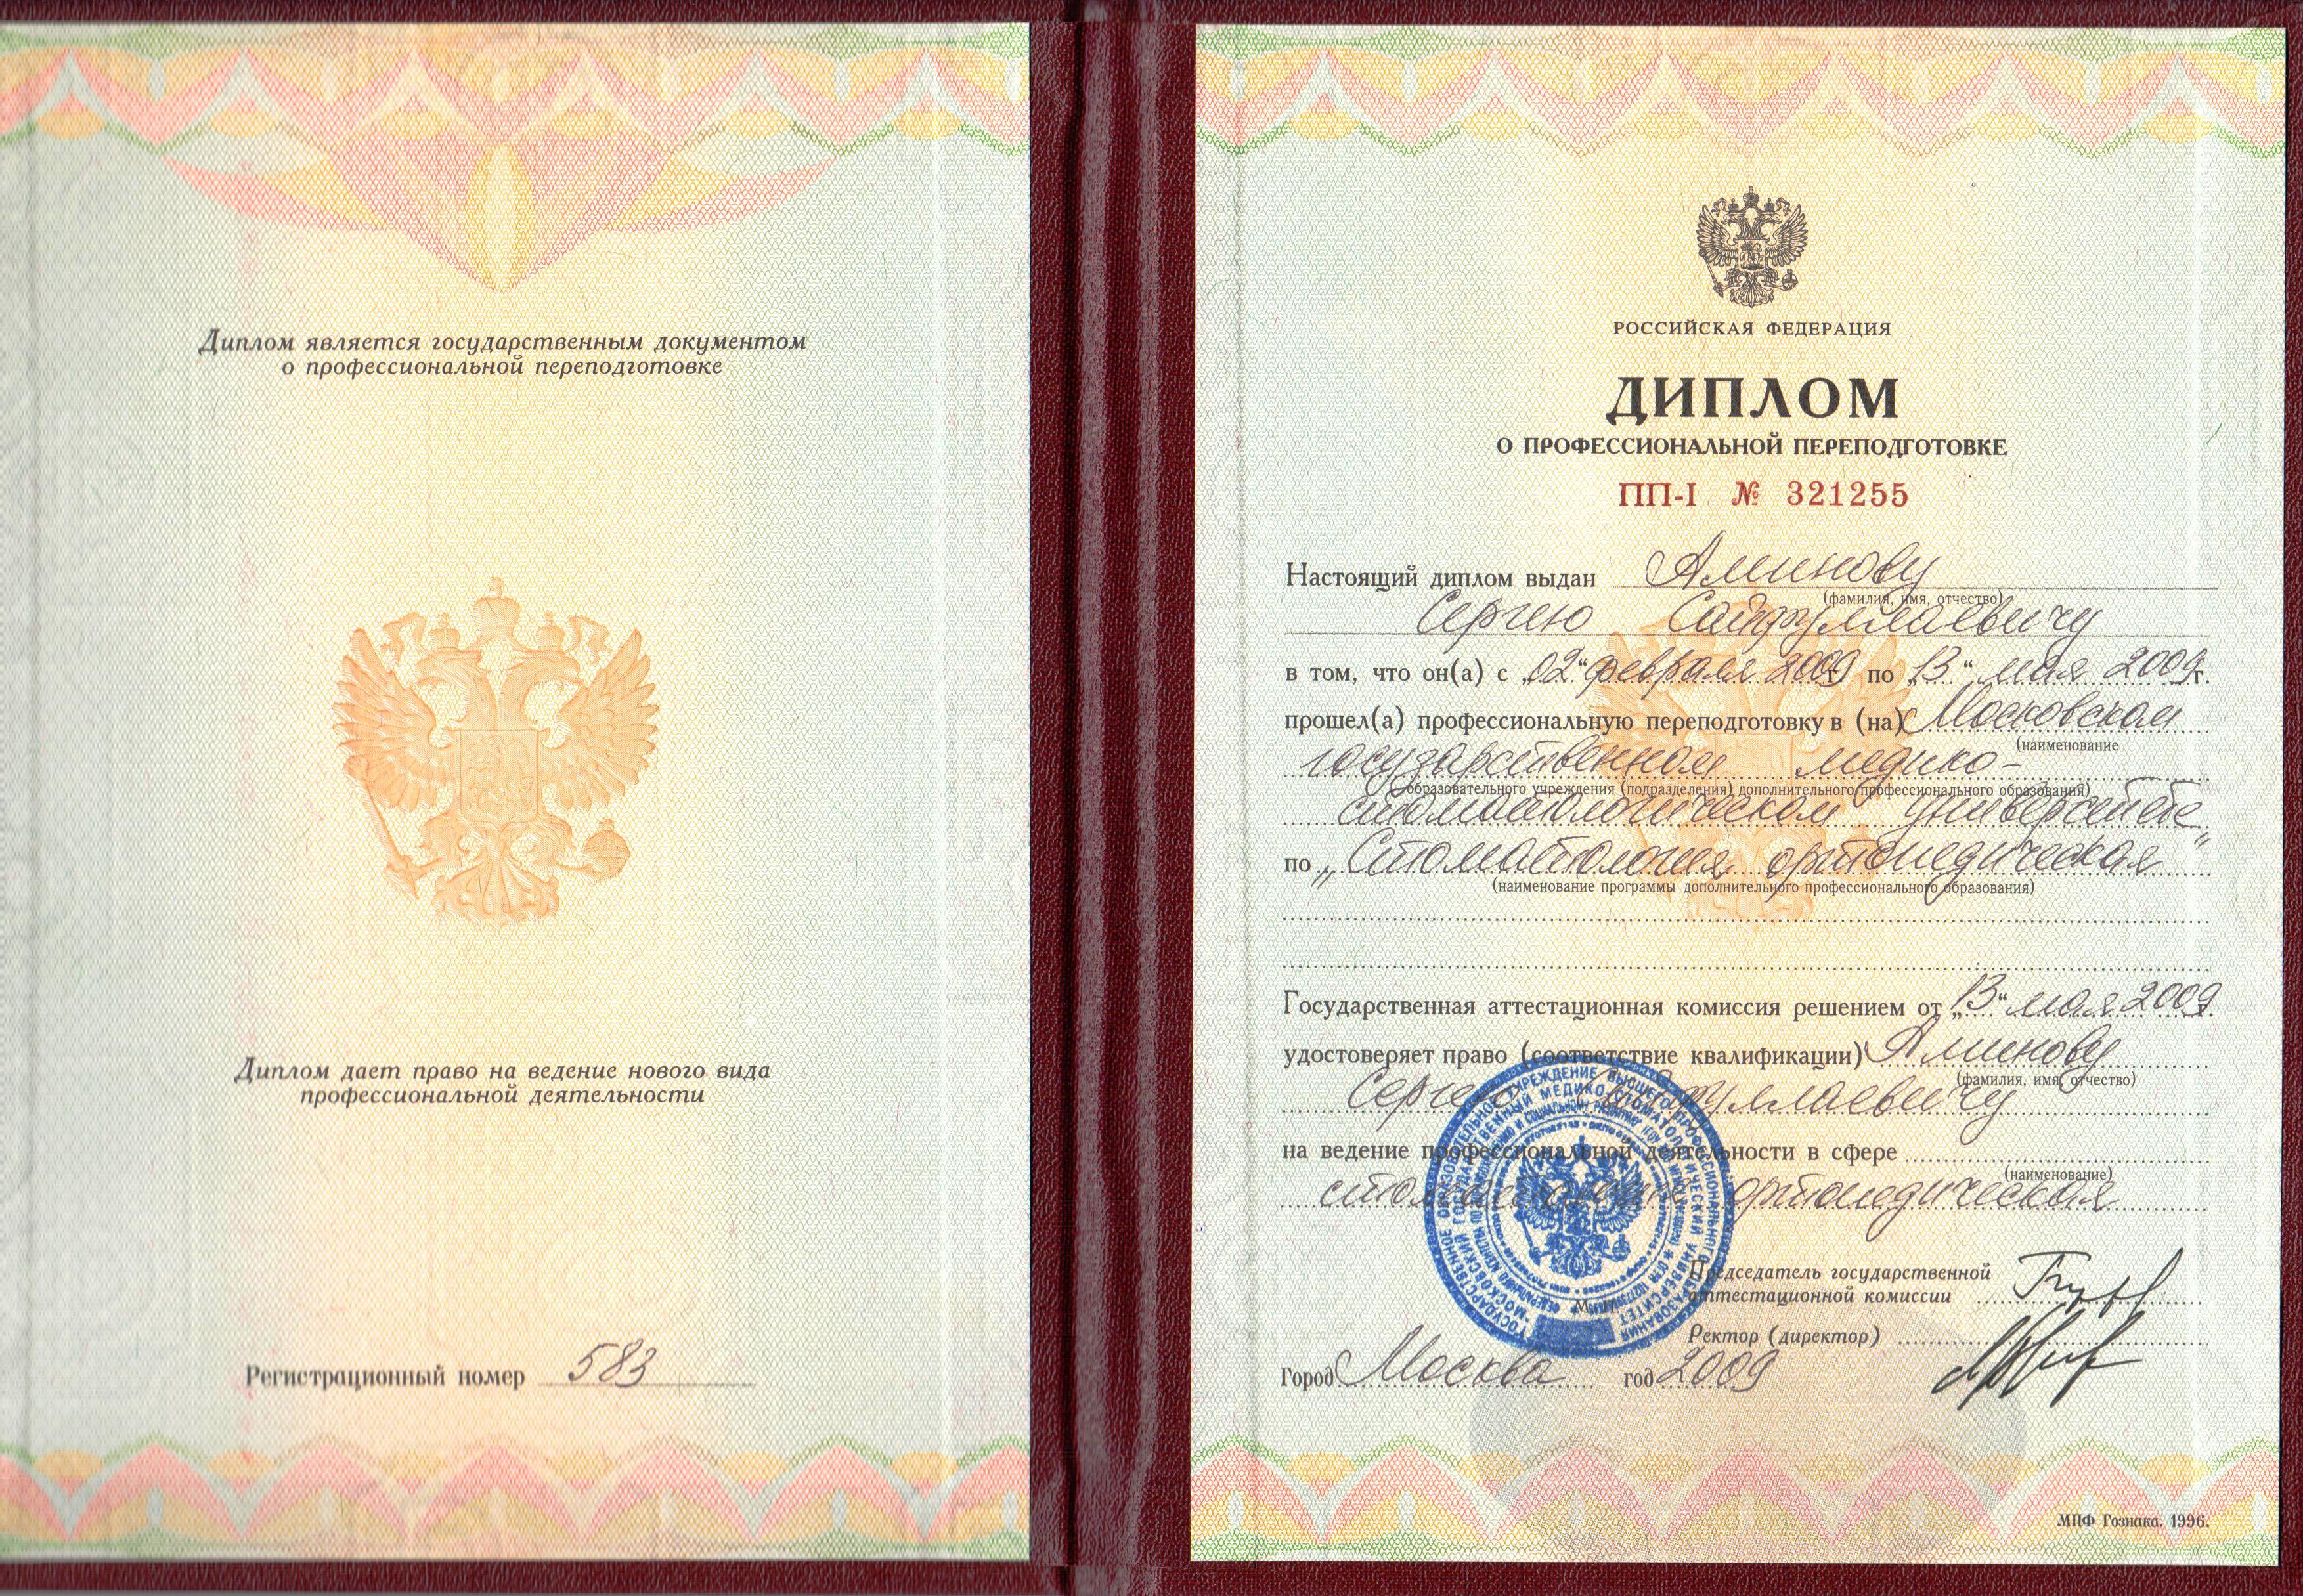 Диплом является государственным документом
о профессиональной переподготовке
Диплом дает право на ведение нового вида
профессиональной деятельности
Регистрационный номер 583
РОССИЙСКАЯ ФЕДЕРАЦИЯ
ДИПЛОМ
О ПРОФЕССИОНАЛЬНОЙ ПЕРЕПОДГОТОВКЕ
ПП-I № 321255
Настоящий диплом выдан Аминову
(фамилия, имя, отчество)
Сергею Сайфуллаевичу
в том, что он(а) с „02“ февраля 2009 г. по „13“ мая 2009 г.
прошел(а) профессиональную переподготовку в (на) Московском
(наименование
государственном медико-
образовательного учреждения (подразделения) дополнительного профессионального образования)
стоматологическом университете
по „Стоматология ортопедическая“
(наименование программы дополнительного профессионального образования)
Государственная аттестационная комиссия решением от „13“ мая 2009 г.
удостоверяет право (соответствие квалификации) Аминову
(фамилия, имя, отчество)
Сергею Сайфуллаевичу
на ведение профессиональной деятельности в сфере
(наименование)
стоматология ортопедическая
Председатель государственной
аттестационной комиссии
М. П.
Ректор (директор)
Город Москва год 2009
ГОСУДАРСТВЕННОЕ ОБРАЗОВАТЕЛЬНОЕ УЧРЕЖДЕНИЕ ВЫСШЕГО ПРОФЕССИОНАЛЬНОГО ОБРАЗОВАНИЯ
МОСКОВСКИЙ ГОСУДАРСТВЕННЫЙ МЕДИКО-СТОМАТОЛОГИЧЕСКИЙ УНИВЕРСИТЕТ
МПФ Гознака. 1996.